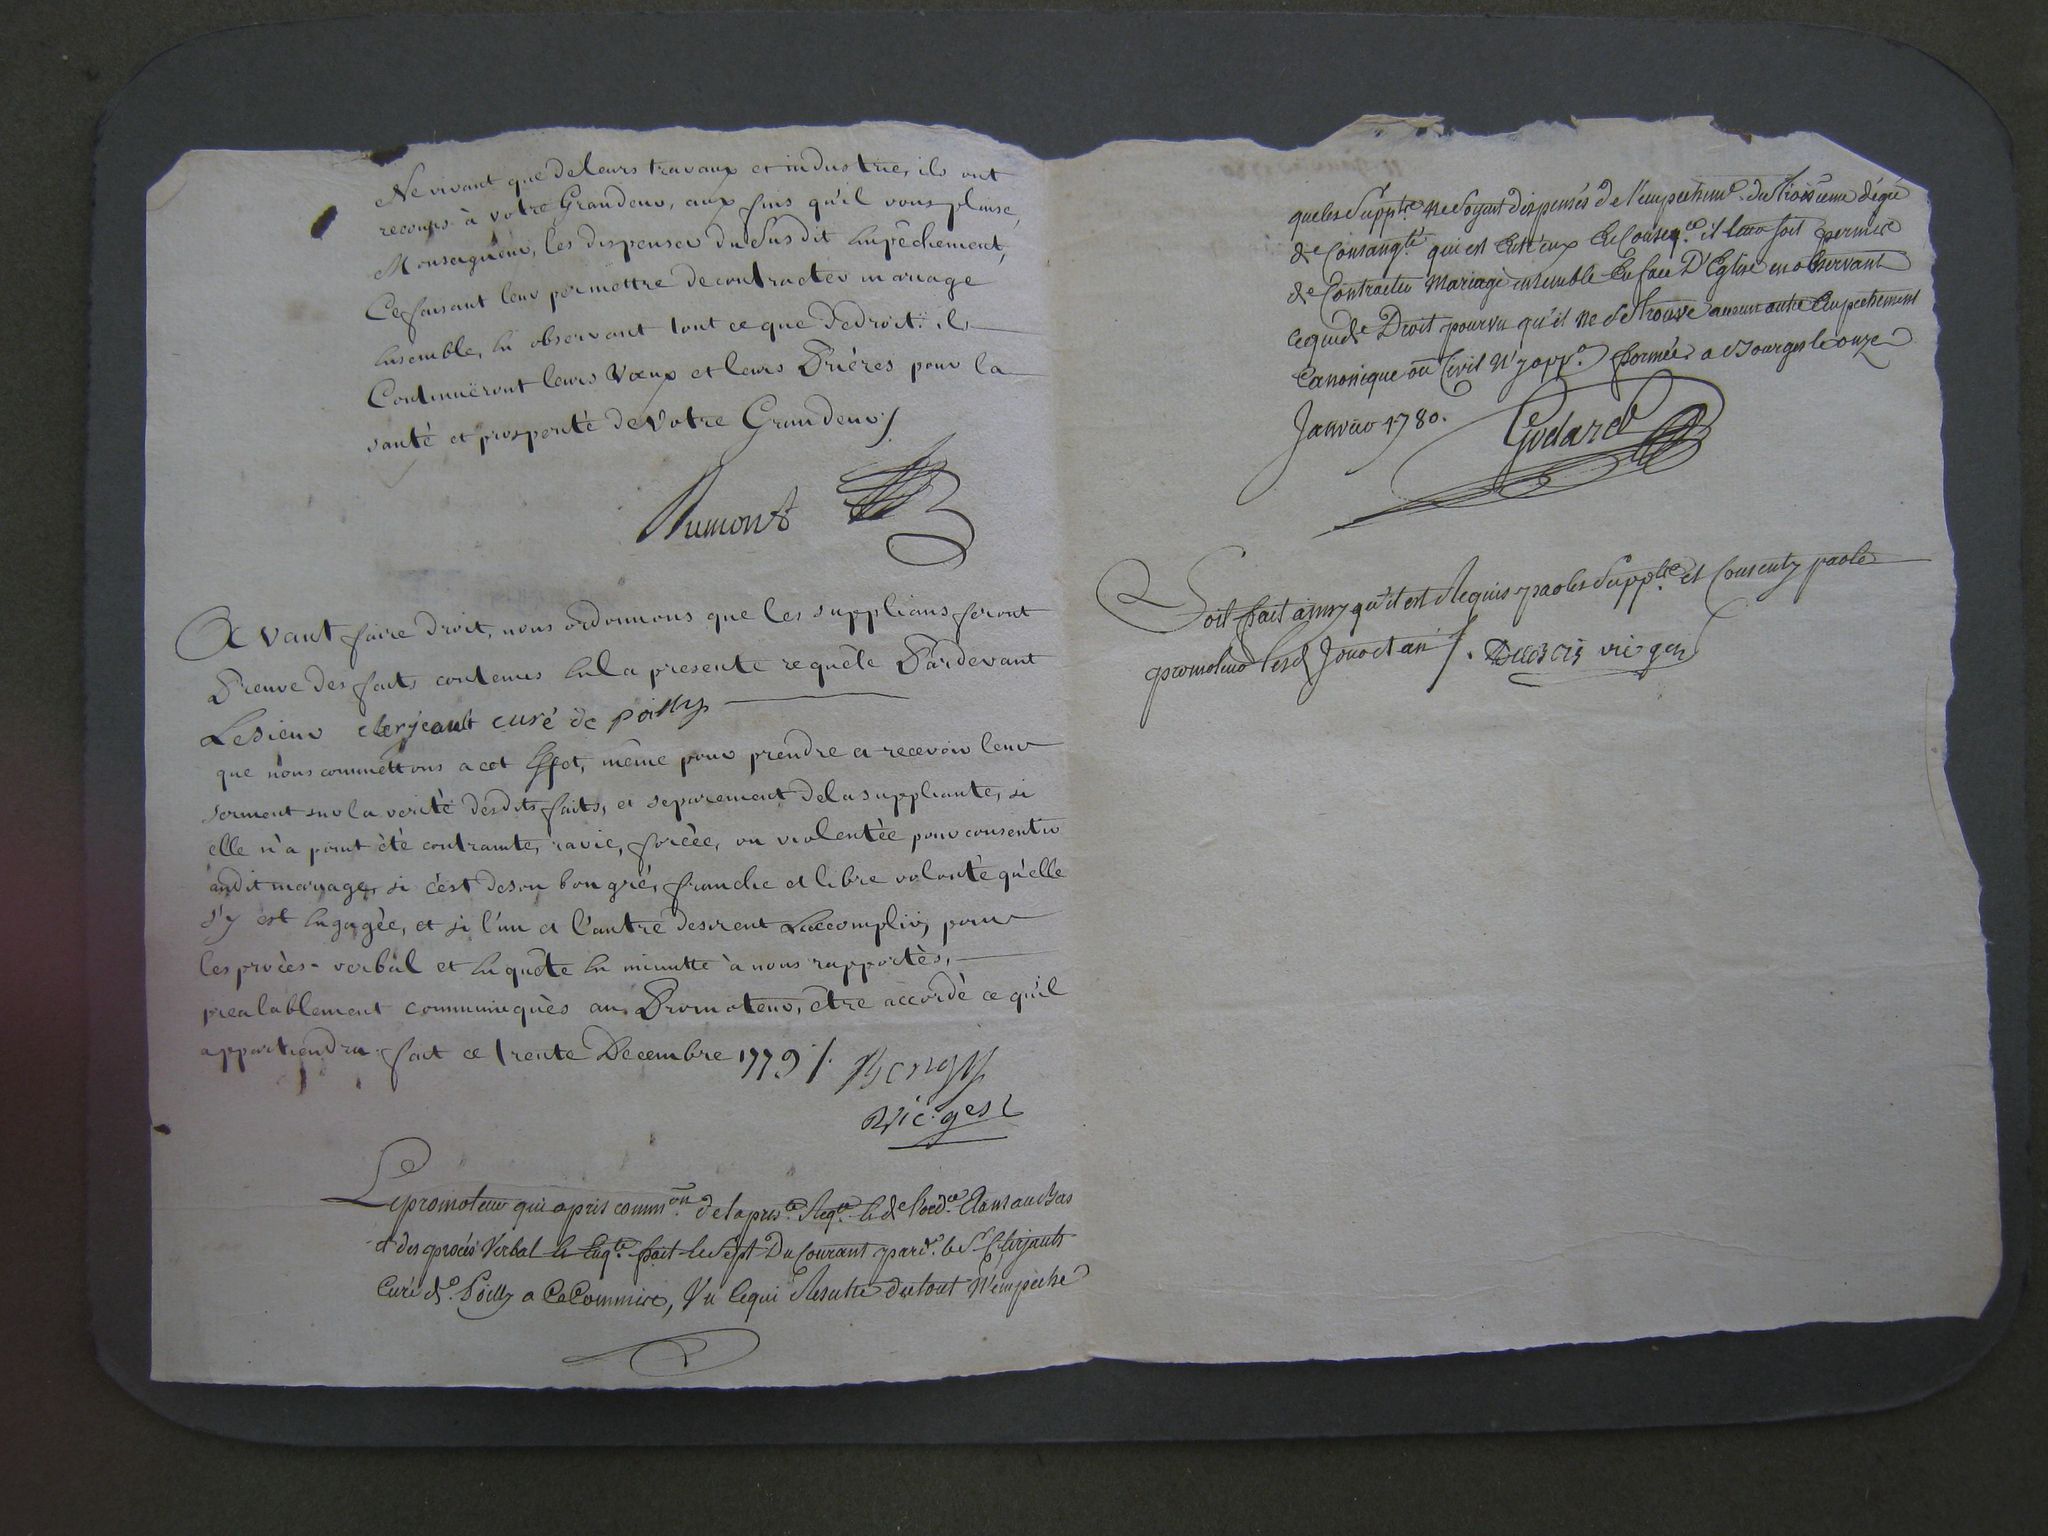 Ne vivant que de leurs travaux et industrie, ils ont
recours à votre Grandeur, aux fins qu'il vous plaise,
Monseigneur, les dispenser du susdit Empêchement,
Ce faisant leur permettre de contracter mariage
Ensemble, En observant tout ce que de droit: ils
Continuëront leurs Vœux et leurs Prières pour la
santé et prosperité de Votre Grandeur /.
Dumont
Avant faire droit, nous ordonnons que les supplians feront
Preuve des faits contenus En la presente requête Pardevant
Le sieur clerjeault curé de poilly
que nous commettons a cet Effet, même pour prendre et recevoir leur
serment sur la verité desdits faits, et separement de la suppliante, si
elle n'a point été contrainte, ravie, forcée, ou violentée pour consentir
audit mariage, si c'est de son bon gré, franche et libre volonté qu'elle
s'y est Engagée, et si l'un et l'autre desirent L'accomplir, pour
les procès-verbal et Enquête En minutte à nous rapportés,
prealablement communiqués au Promoteur, être accordé ce qu'il
appartiendra. fait ce trente Decembre 1779 /.
Bengy
Vic. ges
Le promoteur qui a pris comm.on de la pres.te Req.te & de l'ord.ce Etant au Bas
et des procés Verbal & Enq.te fait le Sept Du Courant par d. le Sr Clerjault
Curé de Poilly a Ce Commise, Vu Ce qui Resulte du tout N'empeche
que les Supp.ts Ne Soyent dispensés de l'empechem.t du troisieme dégré
de Consang.té qui est Entr'eux En Conseq.ce il leur soit permise
de Contracter Mariage ensemble En face D'Eglise en observant
ce qui de Droit pourvu qu'il ne se trouve aucun autre Empechement
Canonique ou Civil N'y opp.on formée a Bourges le onze
Janvier 1780.
Godard
Soit fait ainsy qu'il est Requis par les Supp.ts et Consenty par le
promoteur lesd Jour et an /. vic gen